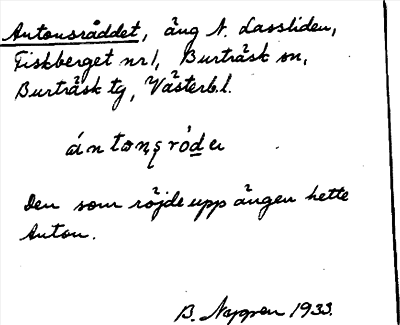 Antonsråddet, äng N. Lassliden,
Fiskberget nr 1, Burträsk sn,
Burträsk tg, Västerb. l.
ántoṇș rȯ́de
Den som röjde upp ängen hette
Anton.
B. Nygren 1933.